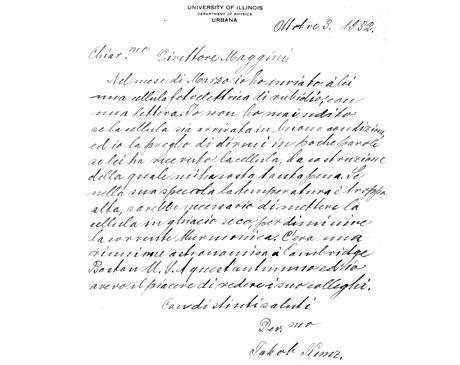 UNIVERSITY OF ILLINOIS
DEPARTMENT OF PHYSICS
URBANA
Ottobre 3. 1932.
Chiar.mo Direttore Maggini
Nel mese di Marzo io ho inviato à lei
una cellula fotoelettrica di rubidio, con
una lettera. Io non ho mai udito
se la cellula sia arrivata in buona condizione,
ed io la preglio di dirmi in poche parole
se lei ha ricevuto la cellula, la costruzione
della quale mi ha costa tanta pena. Se
nella sua specola la temperatura è troppo
alta, sarebbe necessario di mettere la
cellula in ghiaccio secco, per diminuire
la corrente thermonica. C'era una
riunione astronomica à Cambridge
Boston U.S.A quest autunno ed io
avevo il piacere di vedere i suoi colleghi.
Con distinti saluti
Dev.mo
Jakob Kunz.